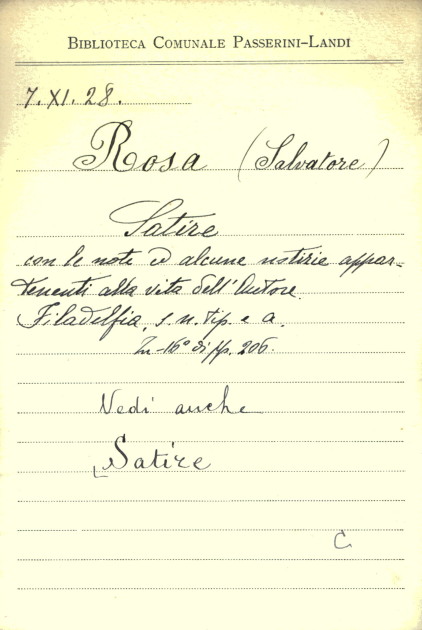 BIBLIOTECA COMUNALE PASSERINI-LANDI
7. XI. 28.
Rosa (Salvatore)
Satire
con le note ed alcune notizie appar-
tenenti alla vita dell'Autore.
Filadelfia, s. n. tip. e a.
In-16° di pp. 206.
Vedi anche
Satire
C